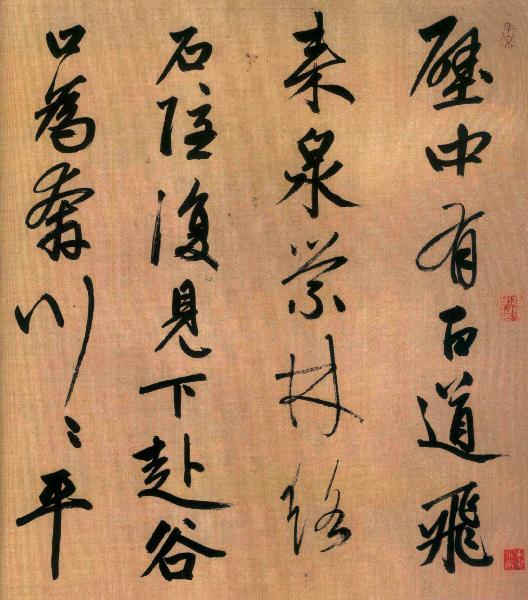 壁中有百道飛
来泉縈林絡
石隱復見下赴谷
口為奔川〻平